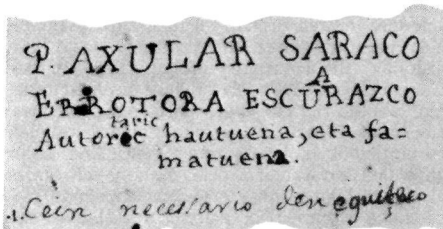 P. AXULAR SARACO
A
ERROTORA ESCURAZCO
taric
Autorec hautuena, eta fa=
matuena.
.1. Cein necessario den eguiteco